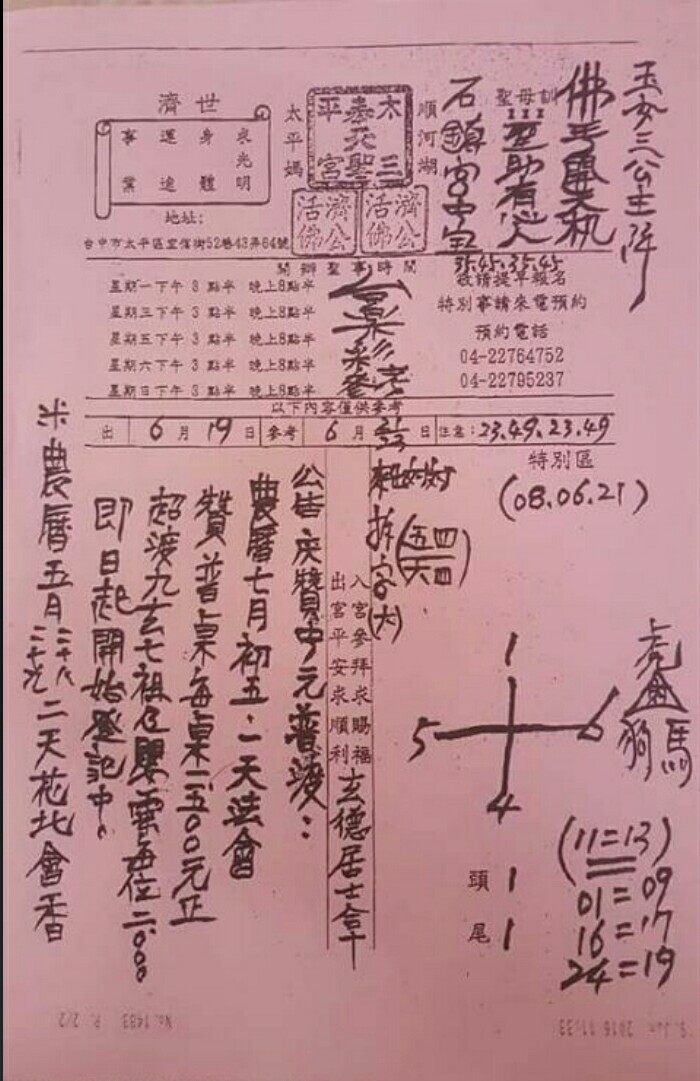 玉女三公主降
佛手開天机
聖母訓
互助有心
石鎮宮中宝
35.45.35.45
順河湖
太三
奉天聖
平宮
濟公活佛
濟公活佛
太平媽
濟世
求光明
身體
運途
事業
地址:
台中市太平區宜信街52巷43弄64號
開辦聖事時間
星期一下午3點半 晚上8點半
星期三下午3點半 晚上8點半
星期五下午3點半 晚上8點半
星期六下午3點半 晚上8點半
星期日下午3點半 晚上8點半
敬請提早報名
特別事請來電預約
預約電話
04-22764752
04-22795237
以下內容僅供參考
出 6月19日 參考 6月21/23日 注意:23.49.23.49
特別區
(08.06.21)
拆字(大)
入宮參拜求賜福
出宮平安求順利
玄德居士合十
公告:慶贊中元普渡:
農曆七月初五.一天法會
贊普桌每桌一五00元正
超渡九玄七祖.每位二.000
即日起開始登記中。
米農曆五月二十八 二十九 二天花北會香
1
5 6
4
虎
狗 馬
(11=13)
01=09
16=17
24=19
頭 1
尾 1
No.1483 P. 2/2
Jun 2016 11:33